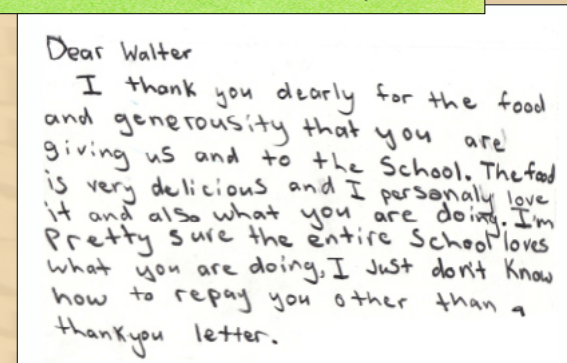 Dear Walter
I thank you dearly for the food
and generousity that you are
giving us and to the School. The food
is very delicious and I personaly love
it and also what you are doing. I'm
Pretty sure the entire School loves
what you are doing, I Just don't Know
how to repay you other than a
thankyou letter.